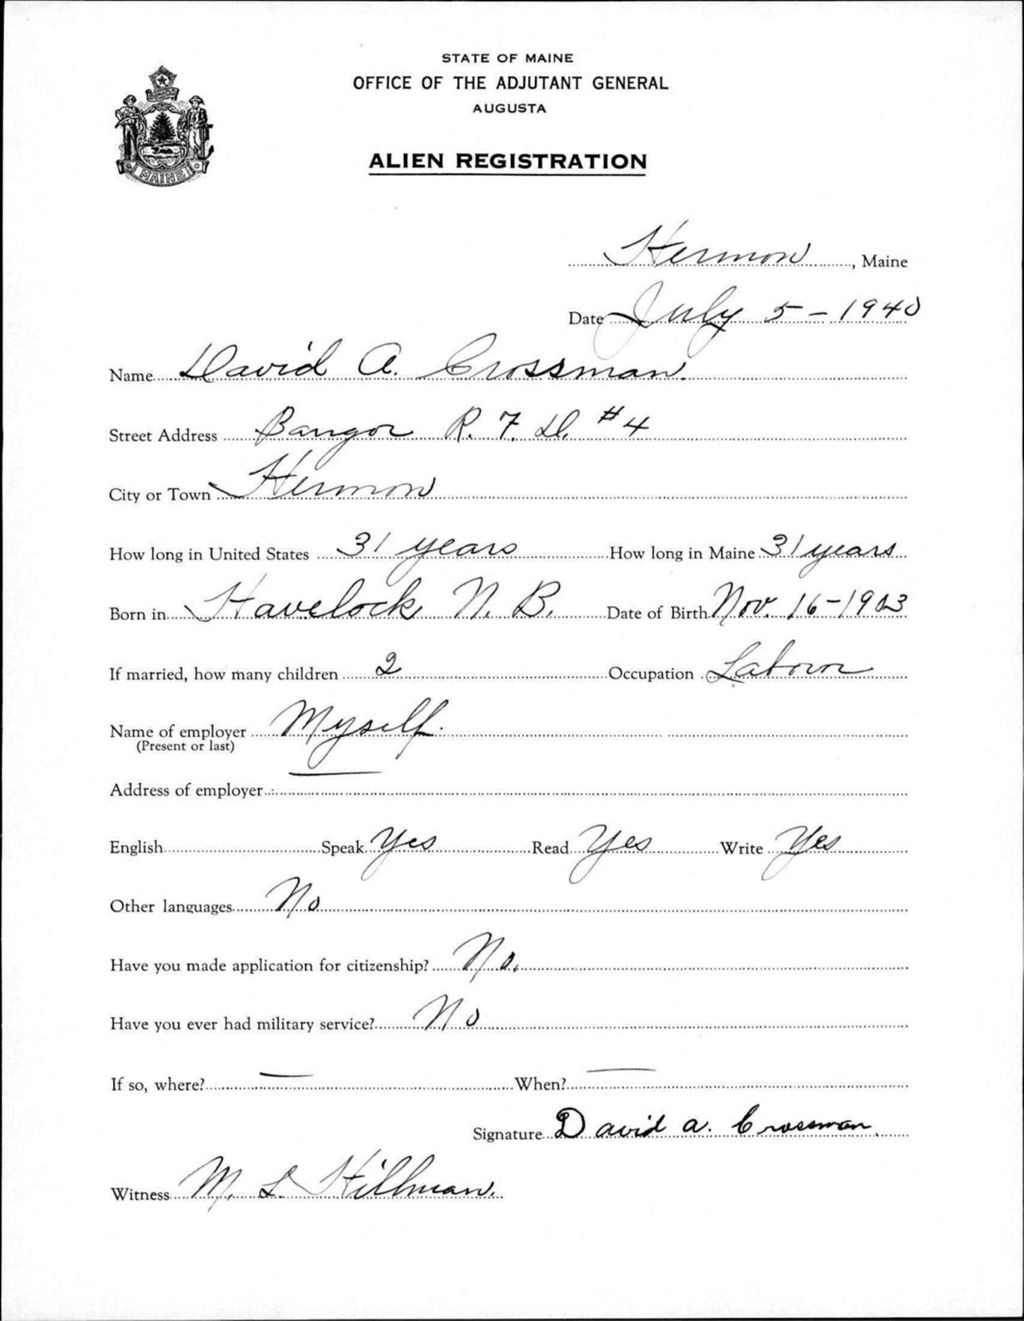 STATE OF MAINE
OFFICE OF THE ADJUTANT GENERAL
AUGUSTA
ALIEN REGISTRATION
MAINE
Hermon, Maine
Date July 5-1940
Name David A. Crossman.
Street Address Bangor R. F. D. #4
City or Town Hermon
How long in United States 31 years How long in Maine 31 years
Born in Havelock N. B. Date of Birth Nov. 16-1903
If married, how many children 2 Occupation Labour
Name of employer Myself.
(Present or last)
Address of employer
English Speak Yes Read Yes Write Yes
Other languages No
Have you made application for citizenship? No.
Have you ever had military service? No
If so, where? — When? —
Signature David A. Crossman.
Witness M. L. Hillman.